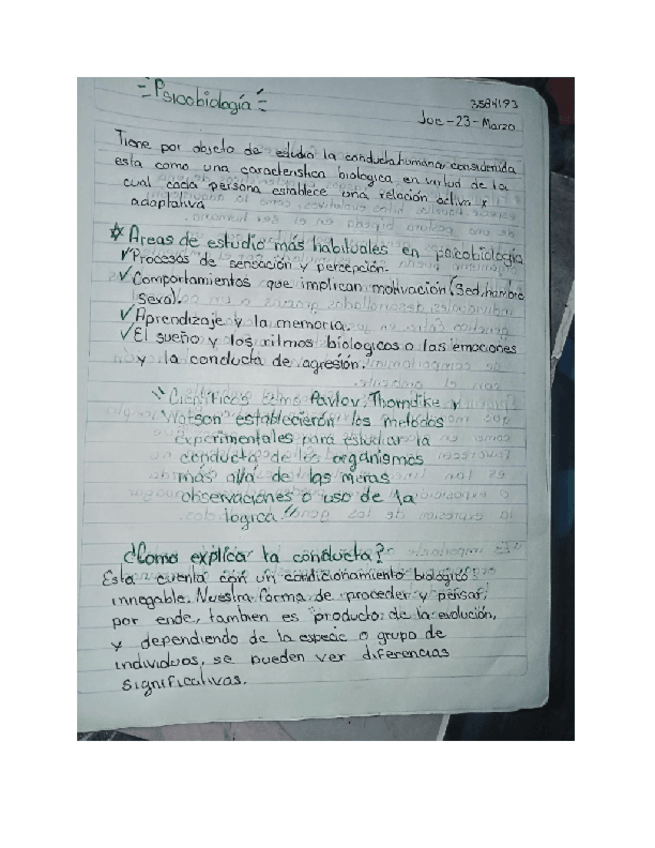 =Psicobiología=
3584193
Jue-23-Marzo
Tiene por objeto de estudio la conducta humana, considerada
esta como una característica biologica en virtud de la
cual cada persona establece una relación activa y
adaptativa
☆ Areas de estudio más habituales en psicobiología
✓Procesos de sensación y percepción.
✓Comportamientos que implican motivación (Sed, hambre
Sexo).
✓Aprendizaje y la memoria.
✓El sueño y los ritmos biologicos o las emociones
y la conducta de agresión.
"Científicos como Pavlov, Thorndike y
Watson establecierón los metodos
experimentales para estudiar la
conducta de los organismos
más allá de las meras
observaciones o uso de la
lógica"
¿Como explica la conducta?
Esta cuenta con un condicionamiento biológico
innegable. Nuestra forma de proceder y pensar,
por ende, tambien es producto de la evolución,
y dependiendo de la especie o grupo de
individuos, se pueden ver diferencias
significativas.